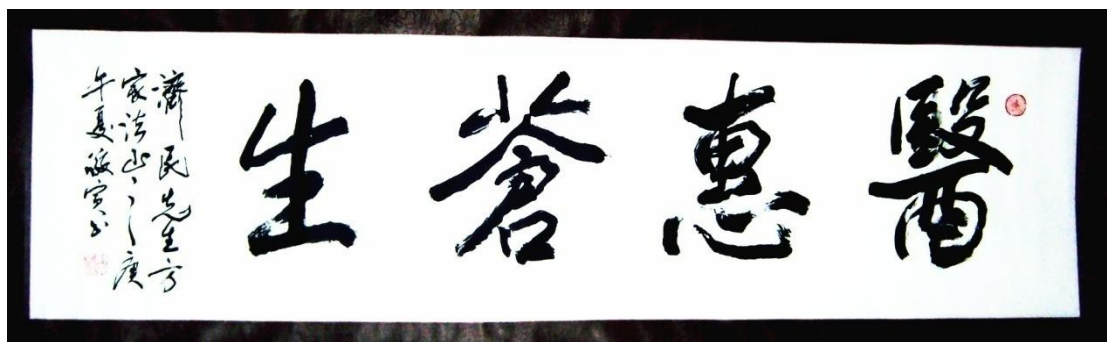 醫惠蒼生
濟民先生方
家法正之庚
午夏书